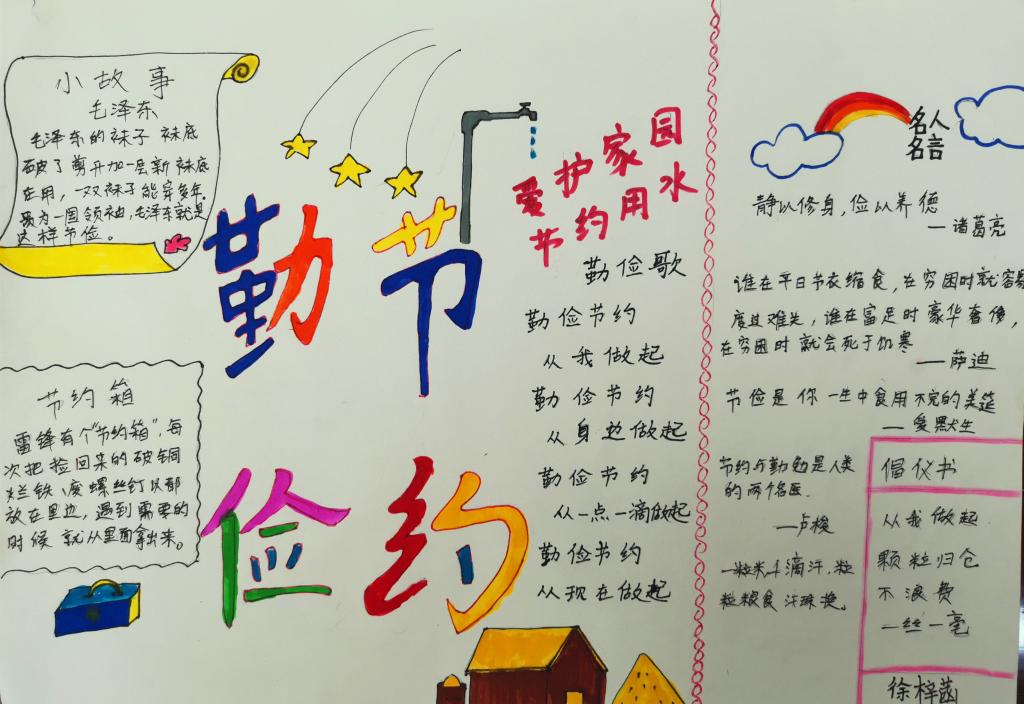 小故事
毛泽东
毛泽东的袜子 袜底
破了剪开加一层新袜底
在用，一双袜子能穿多年.
身为一国领袖,毛泽东就是
这样节俭。
节约箱
雷锋有个"节约箱",每
次把捡回来的破铜
烂铁、废螺丝钉以都
放在里边，遇到需要的
时候 就从里面拿出来。
勤节
俭约
爱护家园
节约用水
勤俭歌
勤俭节约
从我做起
勤俭节约
从身边做起
勤俭节约
从一点一滴做起
勤俭节约
从现在做起
名人
名言
静以修身,俭以养德
—诸葛亮
谁在平日节衣缩食,在穷困时就容易
度过难关,谁在富足时豪华奢侈,
在穷困时就会死于饥寒
——萨迪
节俭是你一生中食用不完的美筵
— 爱默生
节约与勤勉是人类
的两个名医.
—卢梭
一粒米千滴汗,粒
粒粮食汗珠换。
倡仪书
从我做起
颗粒归仓
不浪费
一丝一毫
徐梓菡